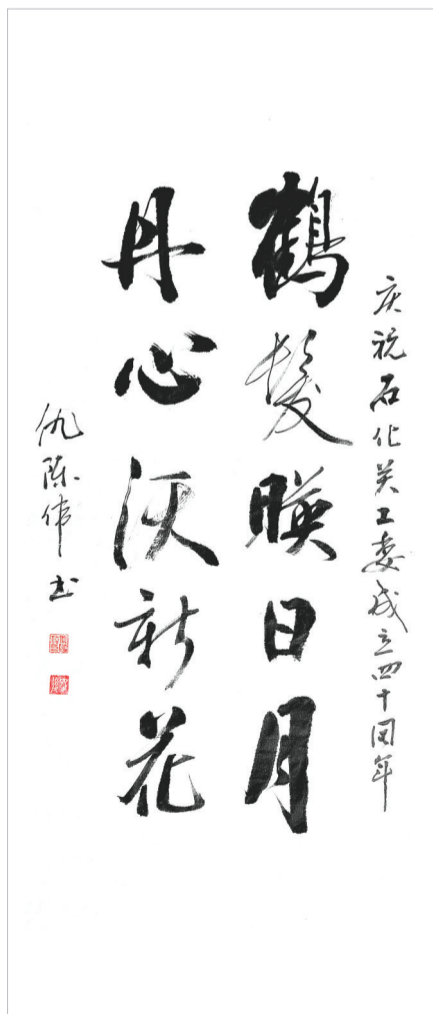 庆祝石化关工委成立四十周年
鹤髪暎日月
丹心沃新花
仇陈伟书